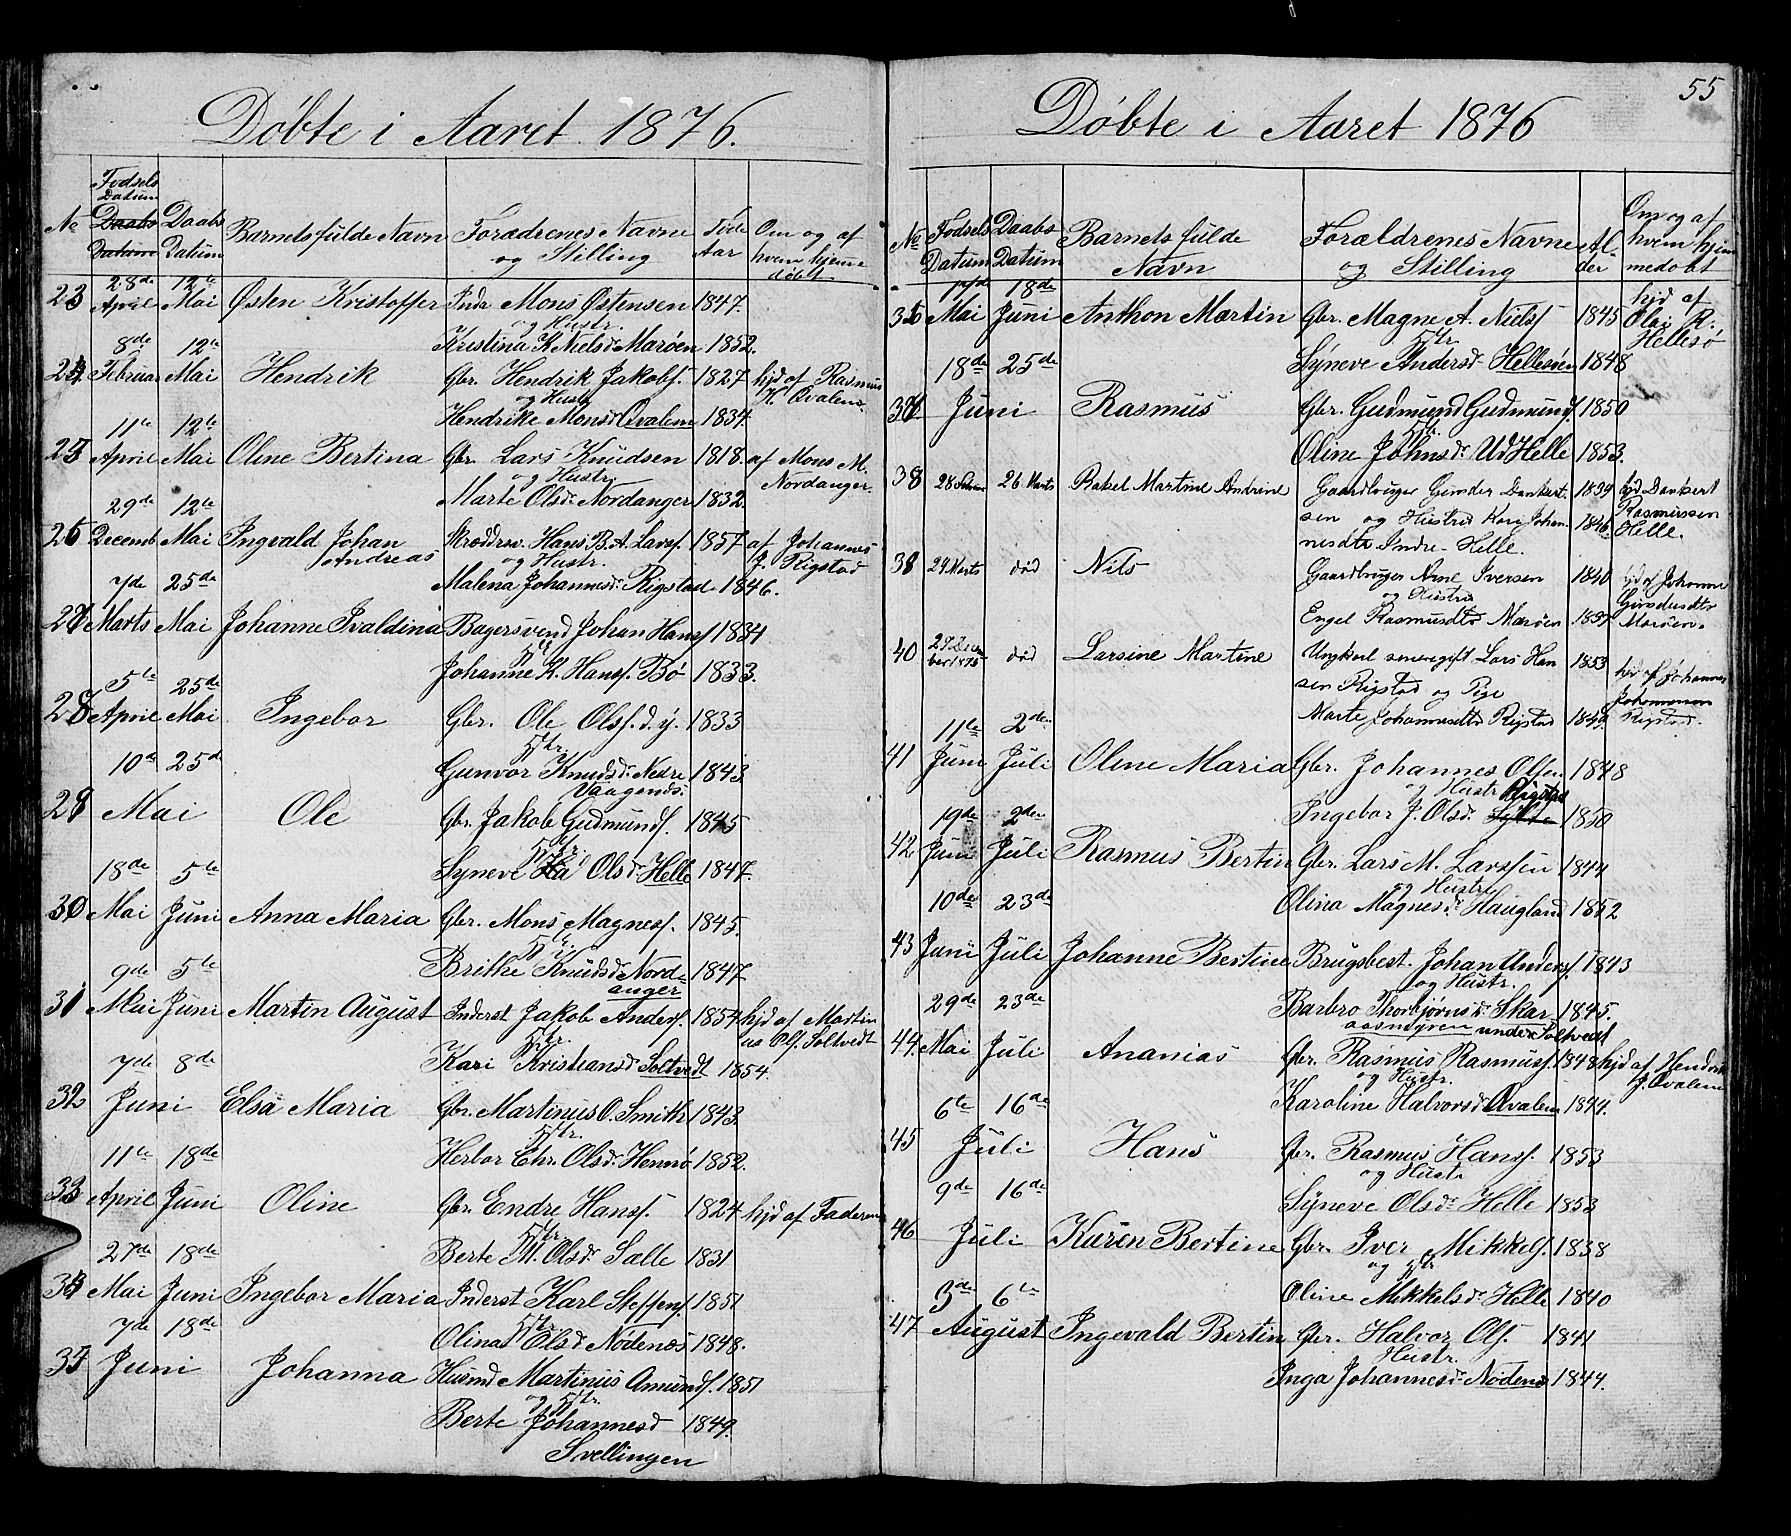 Døbte i Aaret 1876.
No Fødsels Datum Daabs Datum Daabs Datum Barnets fulde Navn Forædrenes Navne og Stilling Føde Aar Om og af hvem hjemmedøbt
28de 12te
23 April Mai Østen Kristoffer Inds Mons Østensen 1847.
og Hustr.
Kristina K. Nielsd. Marøen 1852.
8de 12te
24 Februar Mai Hendrik Gbr. Hendrik Jakobs. 1827 hjd af Rasmus
og Hustr H. Qvalem.
Hendrike Monsd Qvalem 1834.
11te 12te
25 April Mai Oline Bertina Gbr. Lars Knudsen 1818. af Mons M.
og Hustr Nordanger.
Marte Olsd. Nordanger 1832.
29de 12te
26 Decemb Mai Ingvald Johan Skræddersv. Hans B. A. Larsf. 1857 af Johannes
Andreas og Hustr. J. Rigstad
Malena Johannesd. Rigstad 1846.
7de 25de
27 Marts Mai Johanne Ivaldina Bagersvend Johan Hansf 1834
Htr
Johanne K. Hansf. Bø 1833.
5te 25de
28 April Mai Ingebor Gbr. Ole Olsf. d. y. 1833
Htr.
Gunvor Knudsd. Nedre 1843
Vaagenes.
10de 25d
29 Mai Ole Gbr. Jakob Gudmundf. 1845
Htr
Syneve Olsd. Helle 1847.
18de 5te
30 Mai Juni Anna Maria Gbr. Mons Magnesf. 1845.
Htr.
Brithe Knudsd. Nord- 1847
anger
9de 5te
31 Mai Juni Martin August Inderst Jakob Andersf. 1854 hjd af Martin
Htr. Soltvedt
Kari Kristiansd Soltvedt 1854.
7de 8de
32 Juni Elsa Maria Gbr. Martinus O. Smith 1843.
Htr.
Herbor Chr. Olsd. Hennø 1852.
11te 18de
33 April Juni Oline Gbr. Endre Hansf. 1824 hjd af Faderen
Htr
Berte M. Olsd. Salle 1831
27de 18de
34 Mai Juni Ingebor Maria Inderst Karl Steffensf. 1851
Htr
Olina Olsd. Nødenæs 1848.
7de 18de
35 Juni Johanna Husmd Martinus Amundsf. 1851
og Htr.
Berte Johannesd 1849.
Svellingen
55
Døbte i Aaret 1876
No Fødsels Datum Daabs Datum Barnets fulde Navn Forældrenes Navne og Stilling Alder Om og af hvem hjemmedøbt
18de
36 Mai Juni Anthon Martin Gbr. Magne A. Nielsf 1845 hjd af Olai R. Hellesø
Htr
Syneve Andersd. Hellesøen 1848
18de 25de
37 Juni Rasmus Gbr. Gudmund Gudmundf. 1850
Htr.
Oline Johnsd. Ud Helle 1853.
38 26 Marts Rakel Martine Andrine Gaardbruger Gunder Dankert- 1839 hjd Dankert
sen og Hustru Kari Johan- 1846 Rasmussen
nesdtr Indre-Helle. Helle.
39 29 Marts død Nils Gaardbruger Arne Iversen 1840 hjd af Johanne
og Hustru
Engel Rasmusdtr Marøen 1837 Marøen.
40 27 Decem- død Larsine Martine Ungkarl senere gift Lars Han- 1853 hjd af Johannes
ber 1875 sen Rigstad og Pige Johannesen
Marte Johannesdtr Rigstad Rigstad.
11te 2den
41 Juni Juli Oline Maria Gbr. Johannes Olsen 1848
og Hustr Rigstad
Ingebor J. Olsd. 1850
19de 2den
42 Juni Juli Rasmus Bertin Gbr. Lars M. Larssen 1844
og Hustr
Olina Magnesd. Haugland 1852
10de 23de
43 Juni Juli Johanne Bertine Brugsbest. Johan Andersf. 1843
og Hustr.
Barbro Thorbjørnsd. Skar- 1845.
aasmyren under Soltvedt
29de 23de
44. Mai Juli Ananias Gbr. Rasmus Rasmusf. 1848 hjd af Hendrik
og Hustr. J. Qvalem
Karoline Halvorsd Qvalem 1844.
6te 16de
45 Juli Hans Gbr. Rasmus Hansf. 1853
og Hustr
Syneve Olsd. Helle 1853
9de 16de
46 Juli Karen Bertine Gbr. Iver Mikkelf. 1838
og Htr
Oline Mikkelsd. Helle 1840
3de 6te
47 August Ingevald Bertin Gbr. Halvor Olf. 1841
Hustr.
Inga Johannesd. Nødenes 1844.